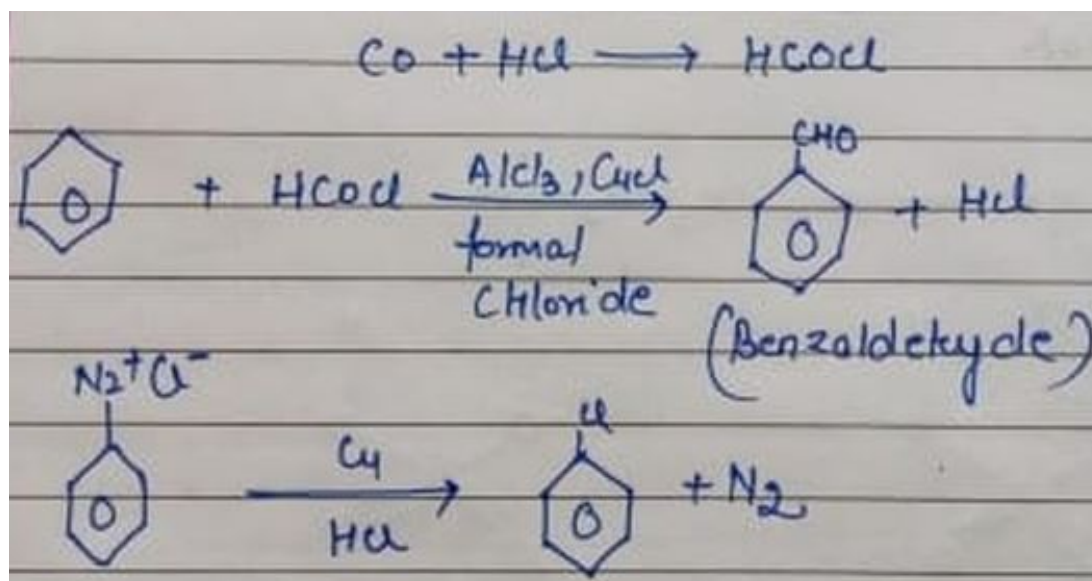 CO + HCl → HCOCl
CHO
+ HCOCl AlCl3, CuCl → + HCl
formal
CHloride
(Benzaldehyde)
N2+Cl-
Cl
Cu → + N2
HCl